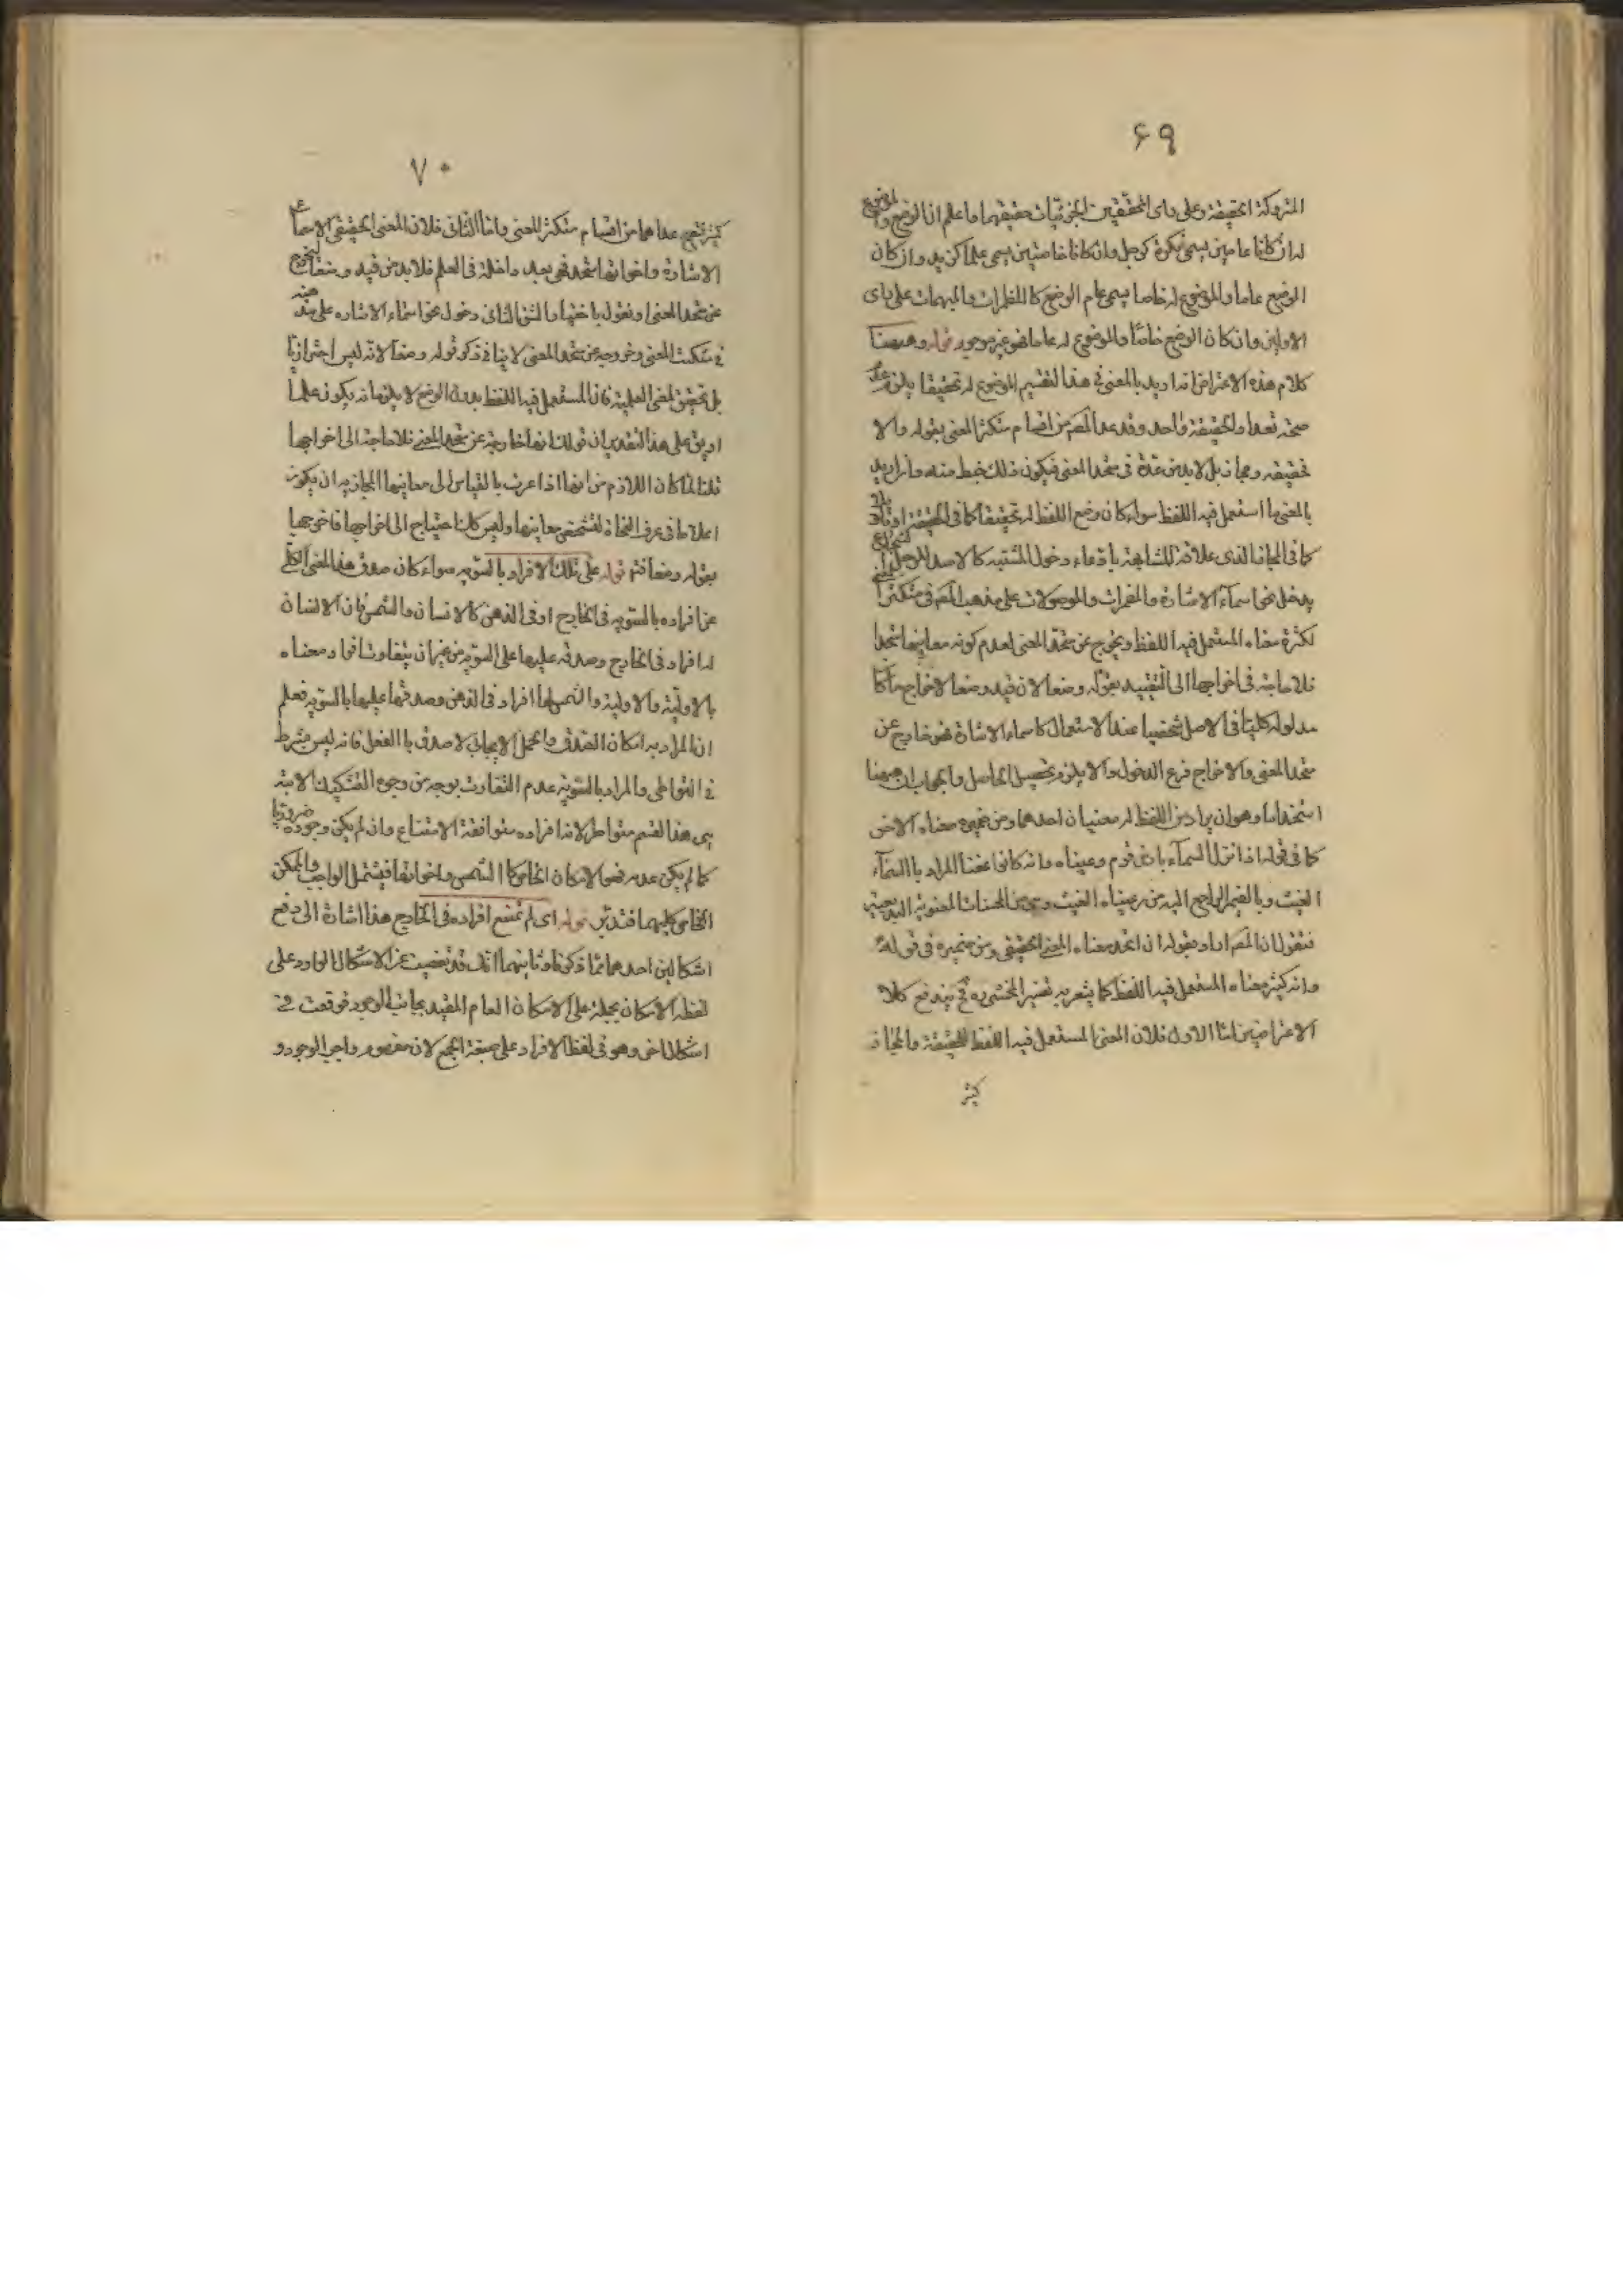 ۶۹
المتروكة الحقيقة وعلى رأى المحققين الجزئيّات حقيقتها واعلم ان الوضع والموضوع
له ان كانا عامين يسمى نكرة كرجل وان كانا خاصّين يسمى علما كزيد وان كان
الوضع عاما والموضوع له خاصا يسمى عام الوضع كالمضمرات والمبهمات على رأى
الاولين وان كان الوضع خاصّا والموضوع له عاما فهو غير موجود قوله وههنا
كلام هذه الاعتراض انه اريد بالمعنى فى هذا التقسيم الموضوع له تحقيقا يلزم عدم
صحة تعدد الحقيقة واحد وقد عد المص من اقسام متكثر المعنى بقوله والا
فحقيقة ومجاز بل لا بد من عدّه فى متحد المعنى فيكون ذلك خبط منه وان اريد
بالمعنى ما استعمل فيه اللفظ سواء كان وضع اللفظ له تحقيقا كما فى الحقيقة او تأويلا
كما فى المجاز الذى علاقته المشابهة بادعاء دخول المشبه كالاسد للرجل الشجاع
يدخل نحو اسمآء الاشارة والمضمرات والموصولات على مذهب المص فى متكثر المعنى
لكثرة معناه المستعمل فيه اللفظ ويخرج عن متحد المعنى لعدم كونه معانيها متحدا
فلا حاجة فى اخراجها الى التقييد بقوله وضعا لان قيد وضعا لاخراج ما كا
مدلوله كليّا فى الاصل شخصيا عند الاستعمال كاسماء الاشارة فهو خارج عن
متحد المعنى والاخراج فرع الدخول والا يلزم تحصيل الحاصل والجواب ان ههنا
استخداما وهو ان يراد من اللفظ له معنيان احدهما ومن ضميره معناه الاخر
كما فى قوله اذا نزل السمآء بارض قوم رعيناه وانه كانوا غضبا المراد بالسمآء
الغيث وبالضمير الراجع اليه من رعيناه الغيث وهى من المحسنات المعنوية البديعية
فنقول ان المص اراد بقوله ان اتحد معناه المعنى الحقيقى ومن ضميره فى قوله
وانه كثر معناه المستعمل فيه اللفظ كما يشعر به تفسير المحشى ره فح يندفع كلا
الاعتراضين امّا الاول فلان المعنى المستعمل فيه اللفظ للحقيقة والمجاز
كثير
۷۰
كثير فصح عدّهما من اقسام متكثر المعنى وامّا الثانى فلان المعنى الحقيقى لاسماء
الاشارة واخواتها متحد فهى بعد داخلة فى العلم فلا بد من قيد وضعا ليخرج
عن متحد المعنى او نقول باختيار الشق الثانى دخول نحو اسماء الاشاره على هذه
فى متكثر المعنى وخروجه عن متحد المعنى لا ينافى ذكر قوله وضعا لانه ليس احترازيّا
بل تحقيق لمعنى العلمية فان المستعمل فيه اللفظ بدون الوضع لا يلزم انه يكون علما
او يق على هذا التقدير ان قولك انها خارجة عن متحد المعنى فلا حاجة الى اخراجها
قلنا لما كان اللازم من انها اذا عرف بالقياس الى معانيها المجازيه ان يكون
اعلاما فى عرف النحاة لتشخص معانيها وليس كلنا احتياج الى اخراجها فاخرجها
بقوله وضعا فتم قوله على تلك الافراد بالسّويه سواء كان صدق هذا المعنى الكلّى
عن افراده بالسّويه فى الخارج او فى الذهن كالانسان والشمس فان الانسان
له افراد فى الخارج وصدقه عليها على السّويه من غير ان يتفاوت افراد معناه
بالاوليّة والاولوية والشمس لها افراد فى الذهن وصدقها عليها بالسّويه فعلم
ان المراد به امكان الصّدق والحمل الايجابى لا صدق بالفعل فانه ليس بشرط
فى التواطى والمراد بالسّويه عدم التفاوت بوجه من وجوه التشكيك الاتية
يسمى هذا القسم متواطيا لانه افراده متوافقة الامتناع وان لم يكن وجوده ضروريا
كما لم يكن عدمه فهو الامكان الخاص كالشمس واخواتها فيشتمل الواجب والممكن
الخاص كليهما فتدبّر قوله اى لم تمتنع افراده فى الخارج هذا اشارة الى دفع
اشكالين احدهما ما ذكرنا وثانيهما انك قد تفصيت عن الاشكال الوارد على
لفظه الامكان بحمله على الامكان العام المقيد بجانب الوجود فوقعت فى
اشكال اخر وهو فى لفظ الافراد على صيغة الجمع لان مفهوم واجب الوجود و